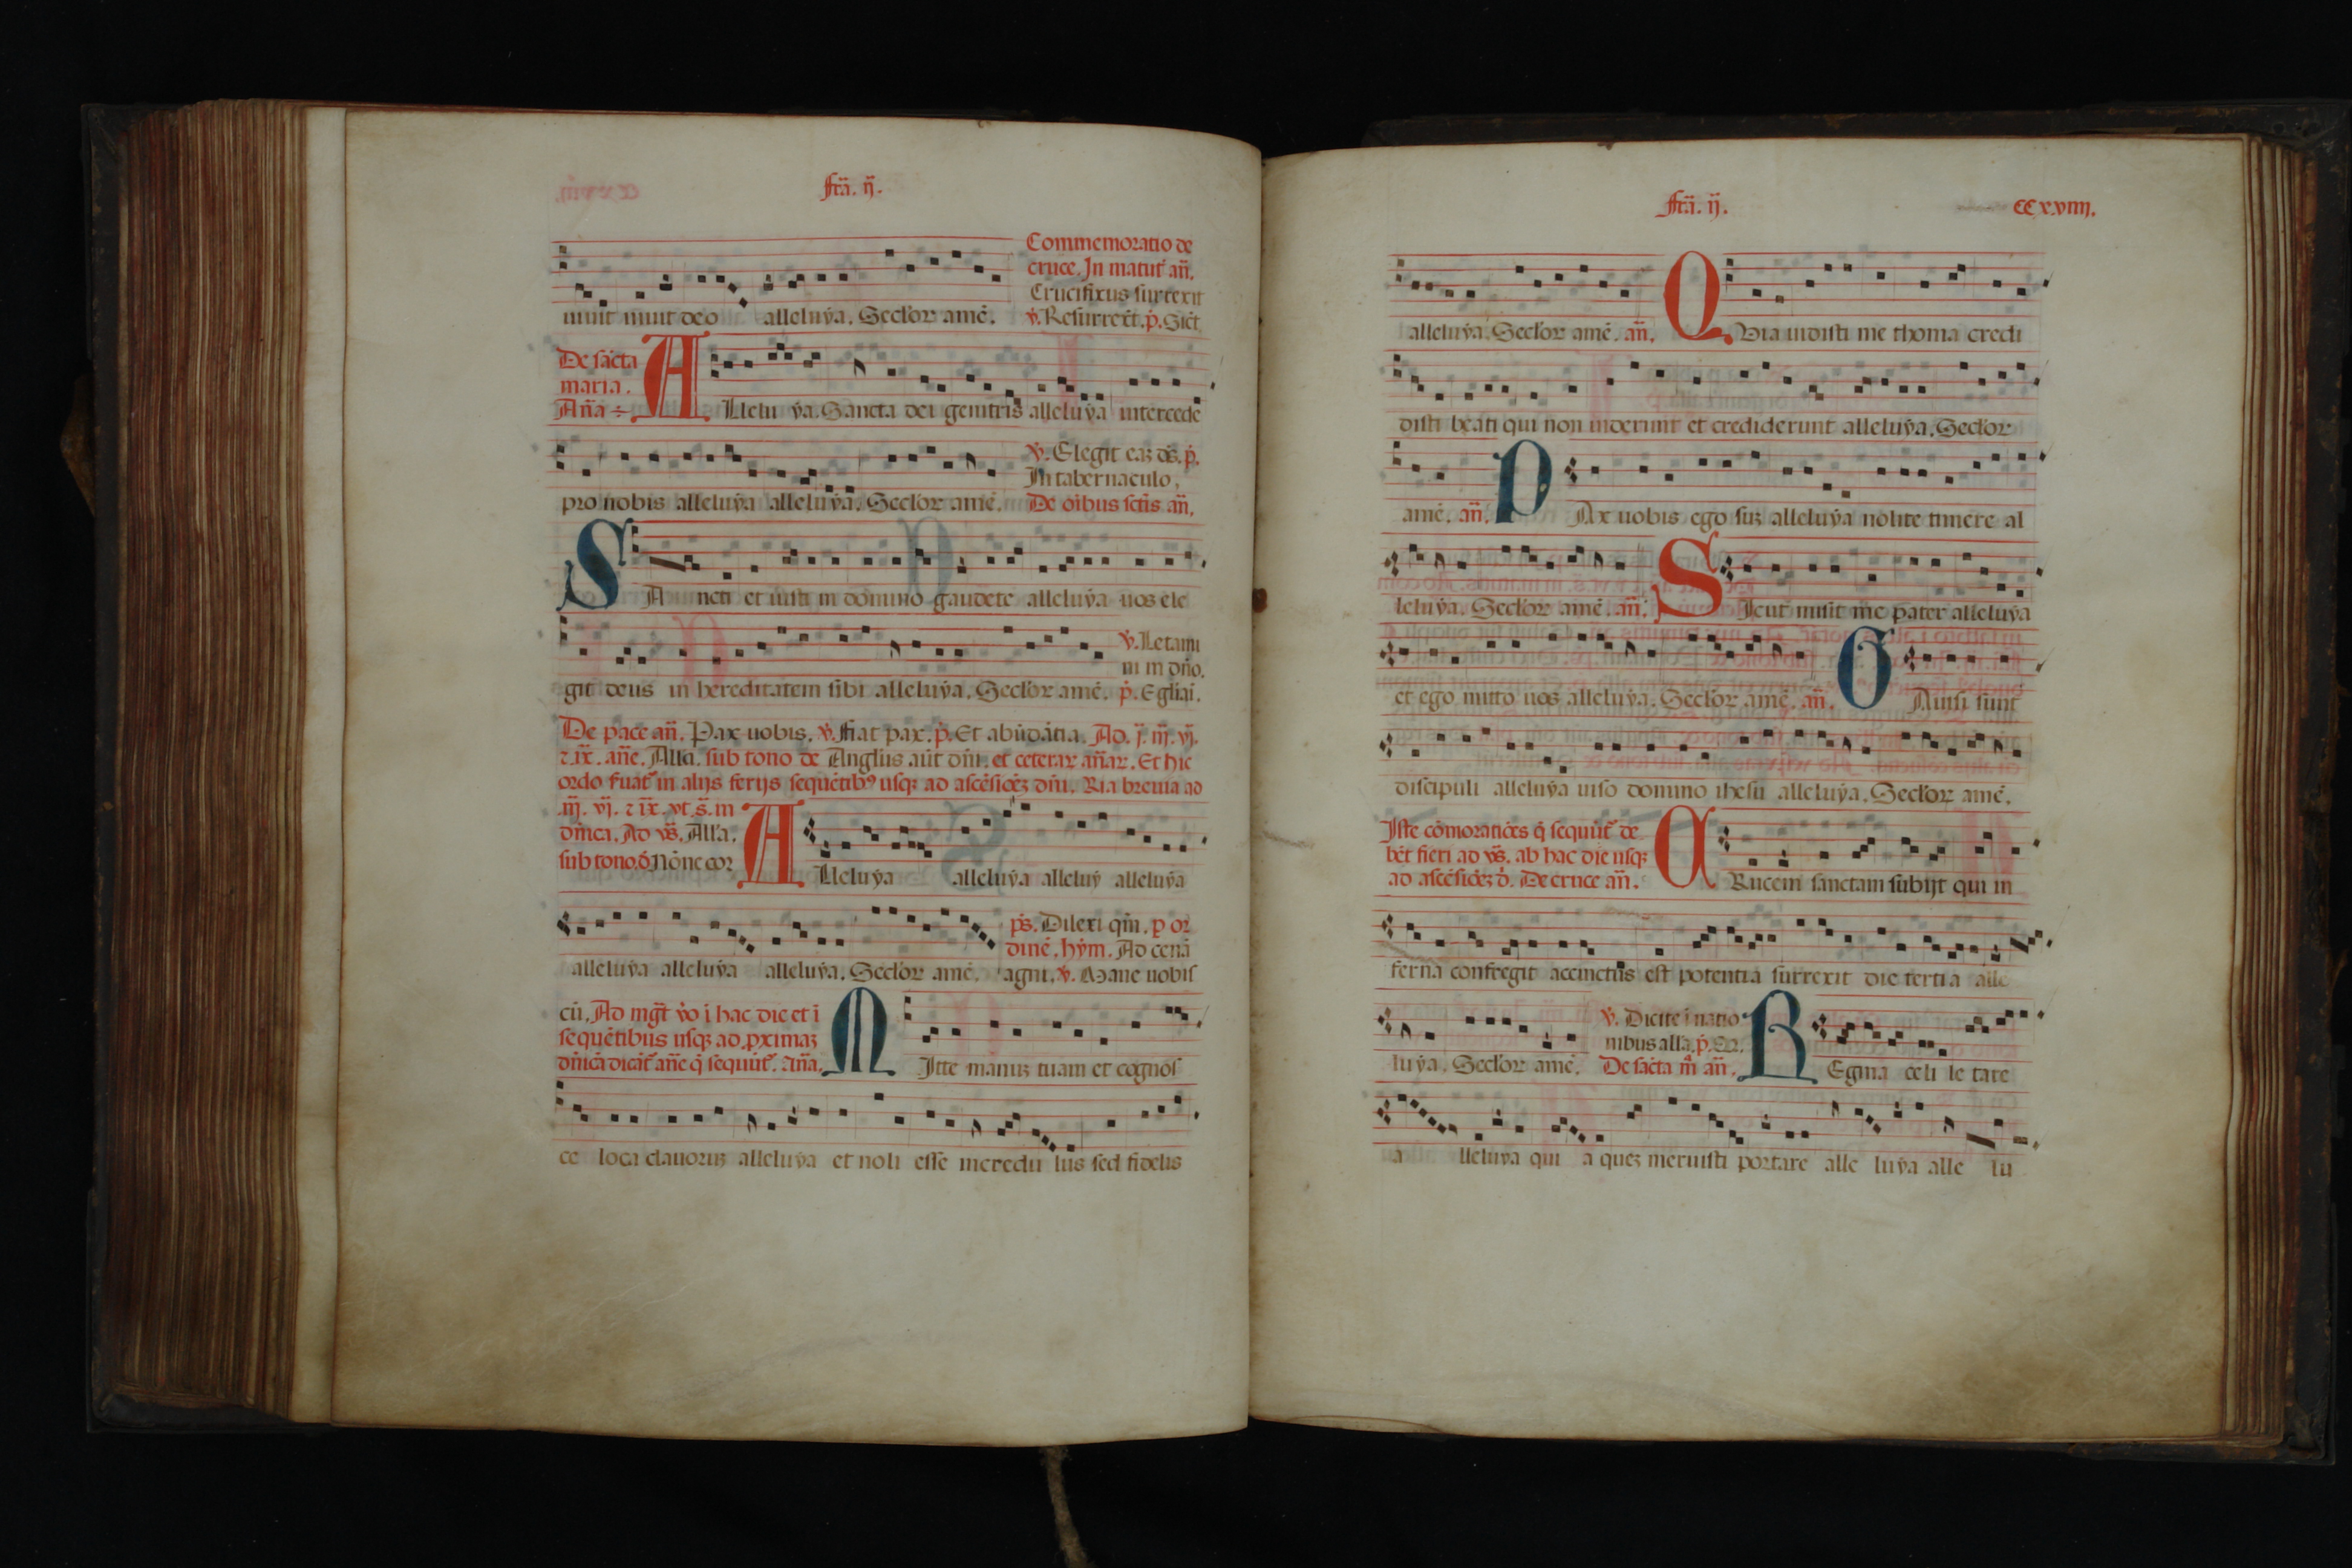 Fr̃a. ij̃.
uiuit uiuit deo alleluẏa. Seclor amē.
Commemoratio de
cruce. In matut̃ añ.
Crucifixus surrexit
v̇. Resurrexit. ṗ. Sicut
De sācta
maria.
Aña
ALlelu ẏa. Sancta dei genitris alleluẏa intercede
pro nobis alleluẏa alleluẏa. Seclor amē.
v̇. Elegit eaz ds̃. ṗ.
In tabernaculo.
De oībus sctīs añ.
SAncti et iusti in domino gaudete alleluẏa uos ele
git deus in hereditatem sibi alleluẏa. Seclor amē.
v̇. Letami
ni in dño.
ṗ. Et gl̃iai.
De pace añ. Pax uobis. v̇. Fiat pax. ṗ. Et abūdātia. Ad. j̃. iij̃. vj̃.
⁊ ix̃. añe. Alla. sub tono de Angl̃us aūt dñi. et ceterar añar. Et hic
ordo ẜuat̃ in alijs ferijs sequētibꝰ usqz ad ascēsiōez dñi. Ria breuia ad
.iij̃. vj̃. ⁊ ix̃. vt s̃. in
dñica. Ad vs̃. All̃a.
sub tono. ō. Nōne cor
ALleluẏa alleluẏa alleluẏ alleluẏa
alleluẏa alleluẏa alleluẏa. Seclor amē.
ps̃. Dilexi qm̃. p or
dinē. hẏm. Ad cenā
agni. v̇. Mane nobis
cū. Ad mgt̃ v̇o ī hac die et ī
sequētibus usqz ad proximaz
dñicā dicāt̃ añe q̃ sequūt̃. Aña.
MItte manuz tuam et cognos
ce loca clauoruz alleluẏa et noli esse incredu lus sed fidelis
Fr̃a. ij̃.
CCxxviiij.
alleluẏa. Seclor amē. añ. QVia uidisti me thoma credi
disti beati qui non uiderunt et crediderunt alleluẏa. Seclor
amē. añ. PAx uobis ego suz alleluẏa nolite timere al
leluẏa. Seclor amē. añ. SIcut misit me pater alleluẏa
et ego mitto uos alleluẏa. Seclor amē. añ. GAuisi sunt
discipuli alleluẏa uiso domino ihesu alleluẏa. Seclor amē.
Iste cōmoratiōes q̃ sequūt̃ de
bēt fieri ad vs̃. ab hac die usqz
ad ascēsiōez d̃. De cruce añ.
CRucem sanctam subijt qui in
ferna confregit accinctus est potentia surrexit die tertia alle
luẏa. Seclor amē.
v̇. Dicite ī natio
nibus alla. ṗ.
De sācta m̃ añ.
REgina celi le tare
a lleluẏa qui a quez meruisti portare alle luẏa alle lu